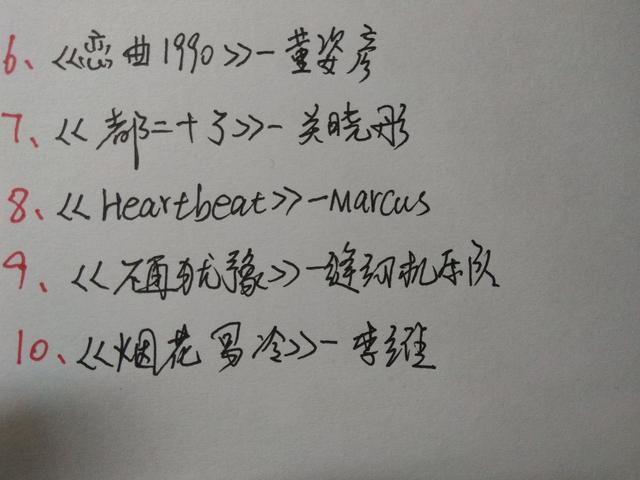 6、《恋曲1990》-董姿彦
7、《都二十了》-关晓彤
8、《Heartbeat》-Marcus
9、《不再犹豫》-缝纫机乐队
10、《烟花易冷》-李维